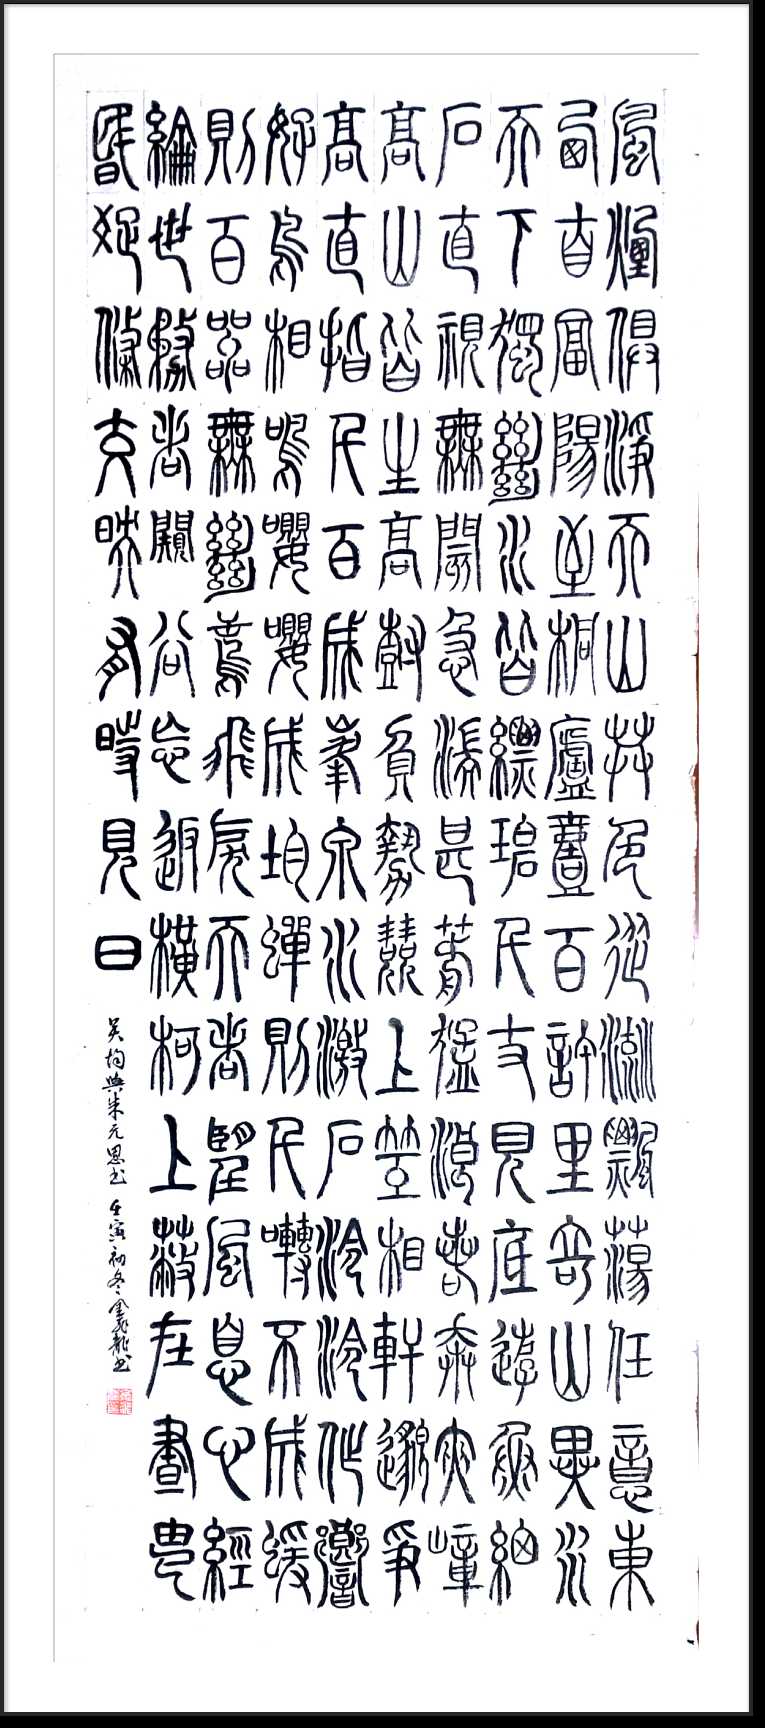 風煙俱淨天山共色從流飄蕩任意東
西自富陽至桐廬壹百許里奇山異水
天下獨絕水皆縹碧千丈見底遊魚細
石直視無閡急湍甚箭猛浪若奔夾嶂
高山皆生高樹負勢競上互相軒邈爭
高直指千百成峯泉水激石泠泠作響
好鳥相鳴嚶嚶成均蟬則千囀不成猨
則百嘂無絕鳶飛戾天者望風息心經
綸世務者闚谷忘返橫柯上蔽在晝猶
昏疏條交映有時見日
吳均與朱元思書 壬寅初冬